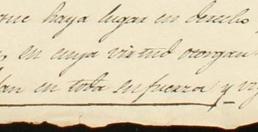 que haya lugar en derecho
, en cuya virtud otorgan
dan en toda su fuerza y